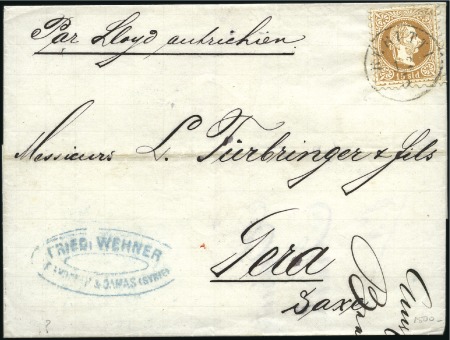 Par Lloyd autrichien
Messieurs L. Fürbringer & fils
Gera
Saxe
FRIED. WEHNER
& DAMAS (SYRIE)